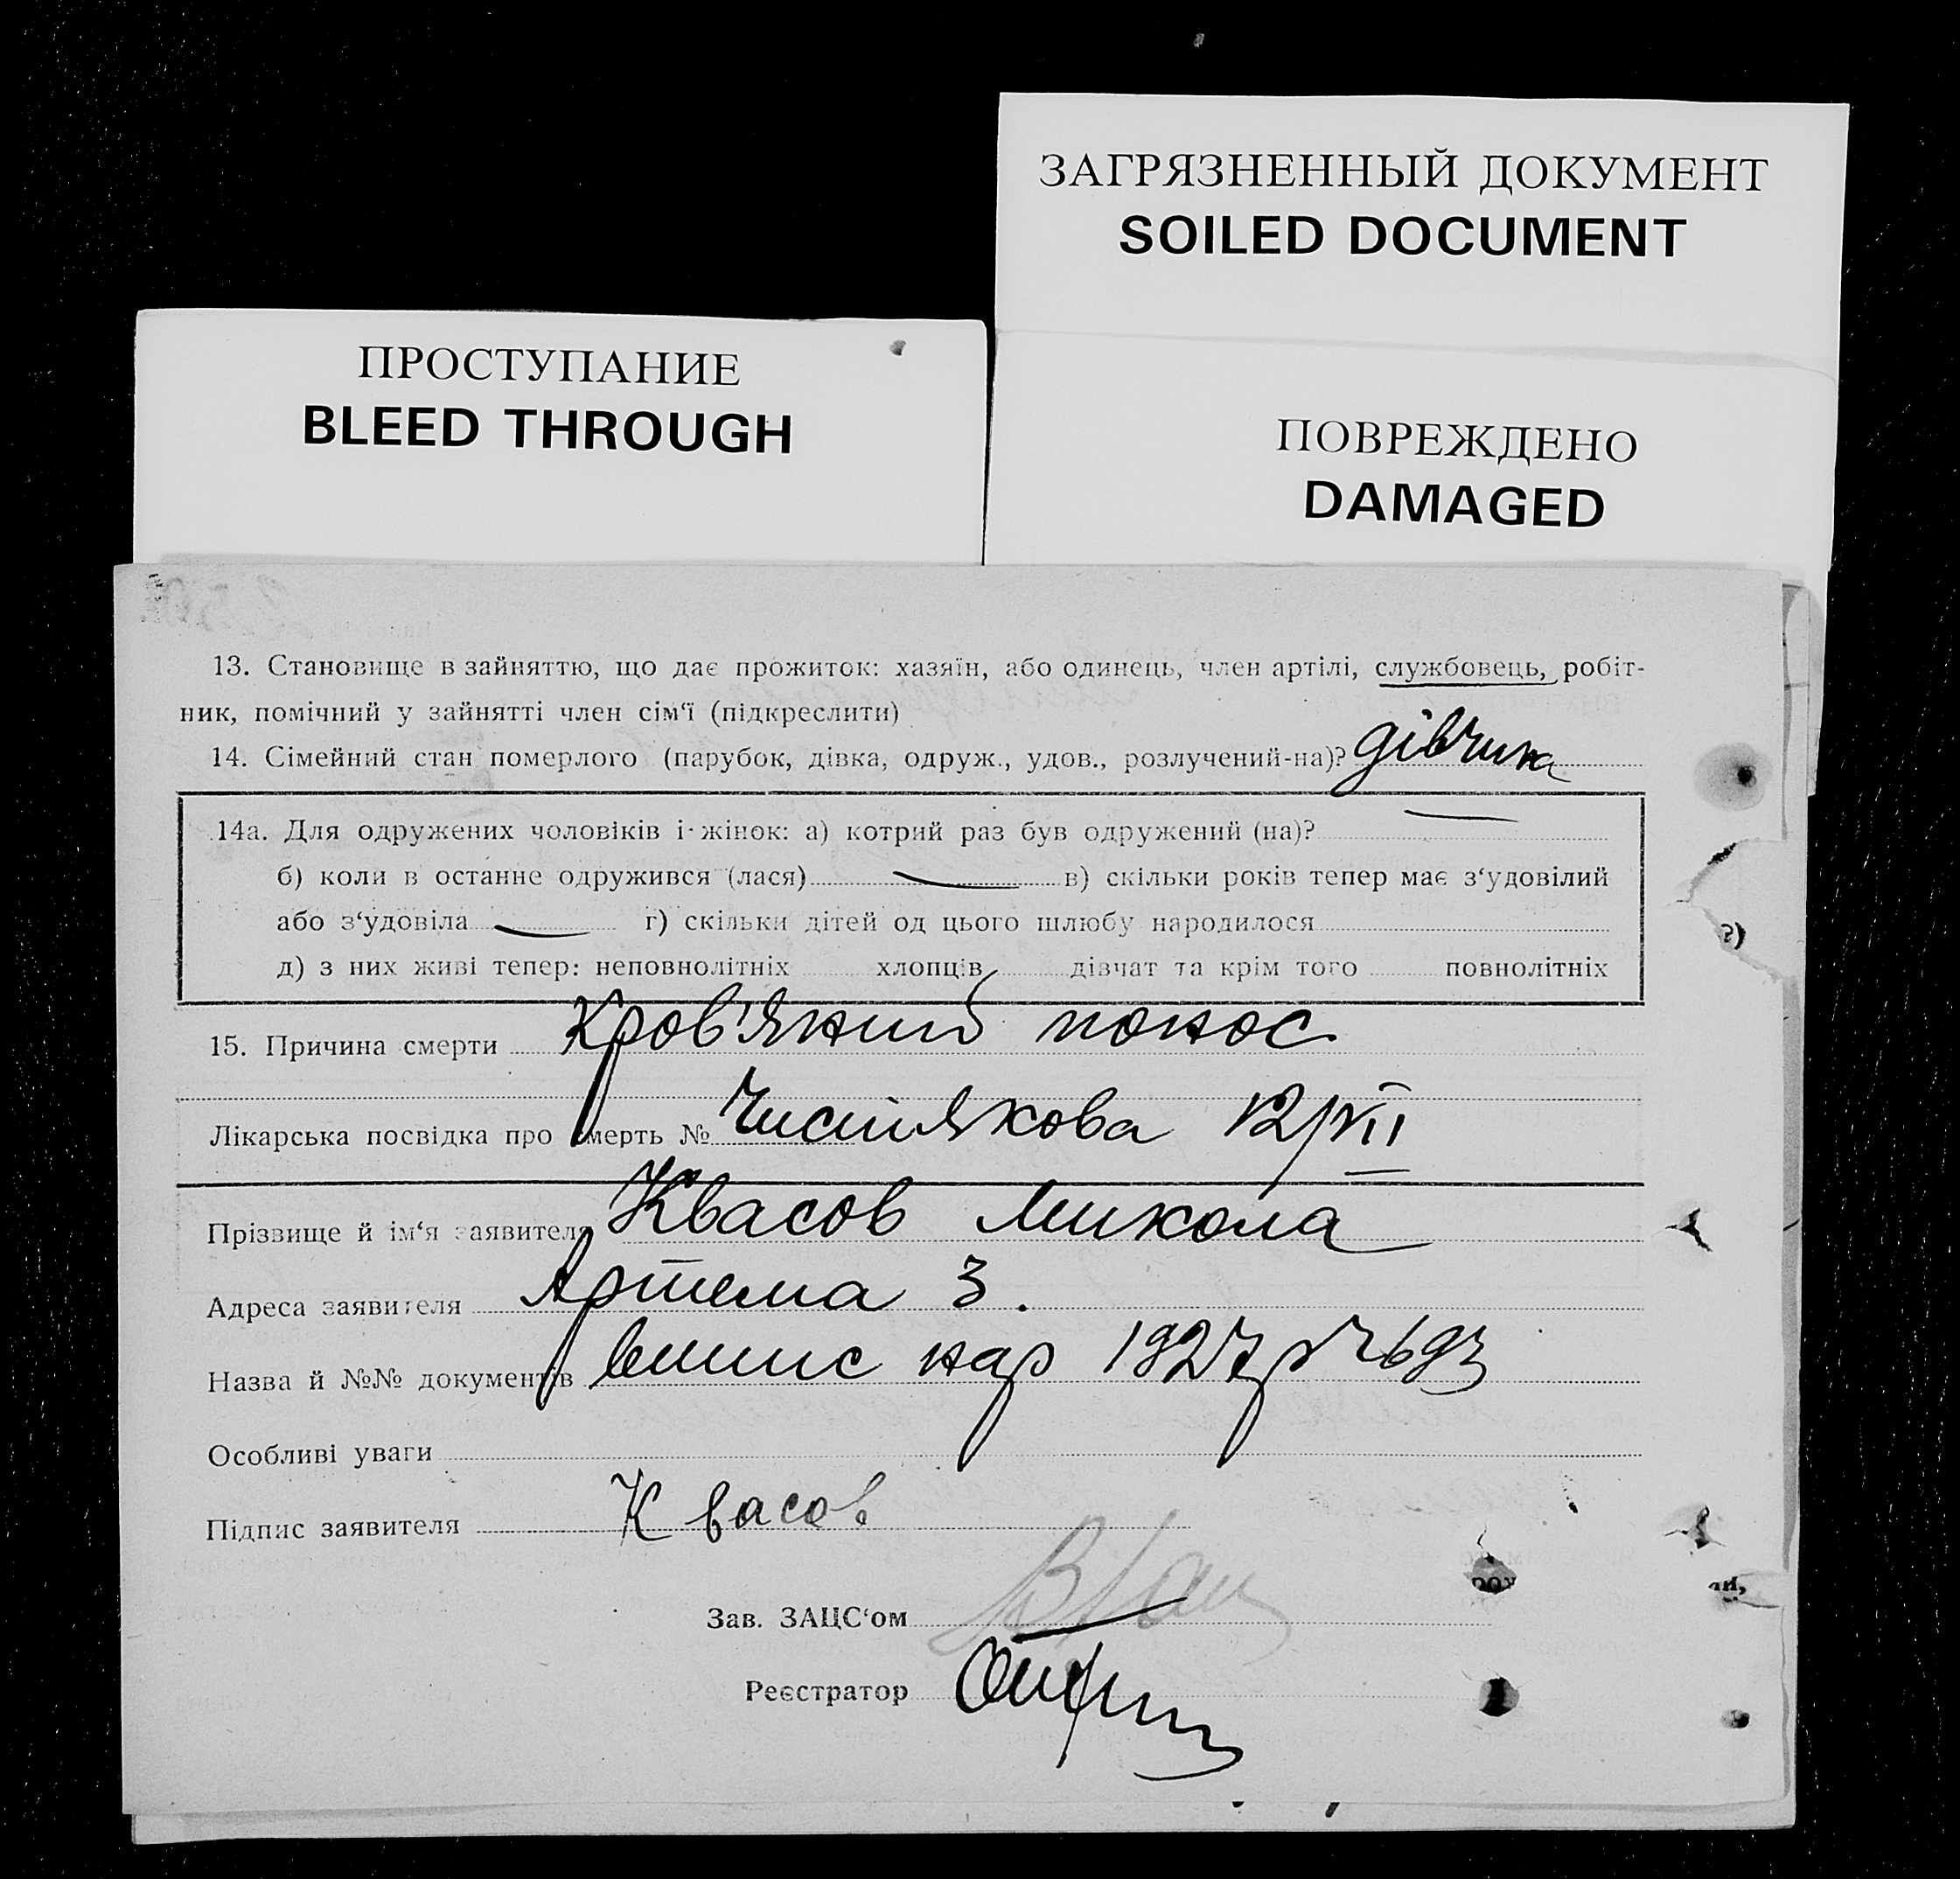 ЗАГРЯЗНЕННЫЙ ДОКУМЕНТ
SOILED DOCUMENT
ПРОСТУПАНИЕ
BLEED THROUGH
ПОВРЕЖДЕНО
DAMAGED
13. Становище в зайняттю, що дає прожиток: хазяїн, або одинець, член артілі, службовець, робіт-
ник, помічний у зайнятті член сім‘ї (підкреслити)
14. Сімейний стан померлого (парубок, дівка, одруж., удов., розлучений-на)? дівчина
14а. Для одружених чоловіків і жінок: а) котрий раз був одружений (на)?
б) коли в останне одружився (лася) в) скільки років тепер має з‘удовілий
або з‘удовіла г) скільки дітей од цього шлюбу народилося
д) з них живі тепер: неповнолітніх хлопців дівчат та крім того повнолітніх
15. Причина смерти Кров'яний понос
Лікарська посвідка про смерть № Чистякова 12/VII
Прізвище й ім‘я заявителя Квасов Микола
Адреса заявителя Артема 3.
Назва й №№ документів випис нар 1927 р
Особливі уваги
Підпис заявителя Квасов
Зав. ЗАЦС‘ом
Реєстратор